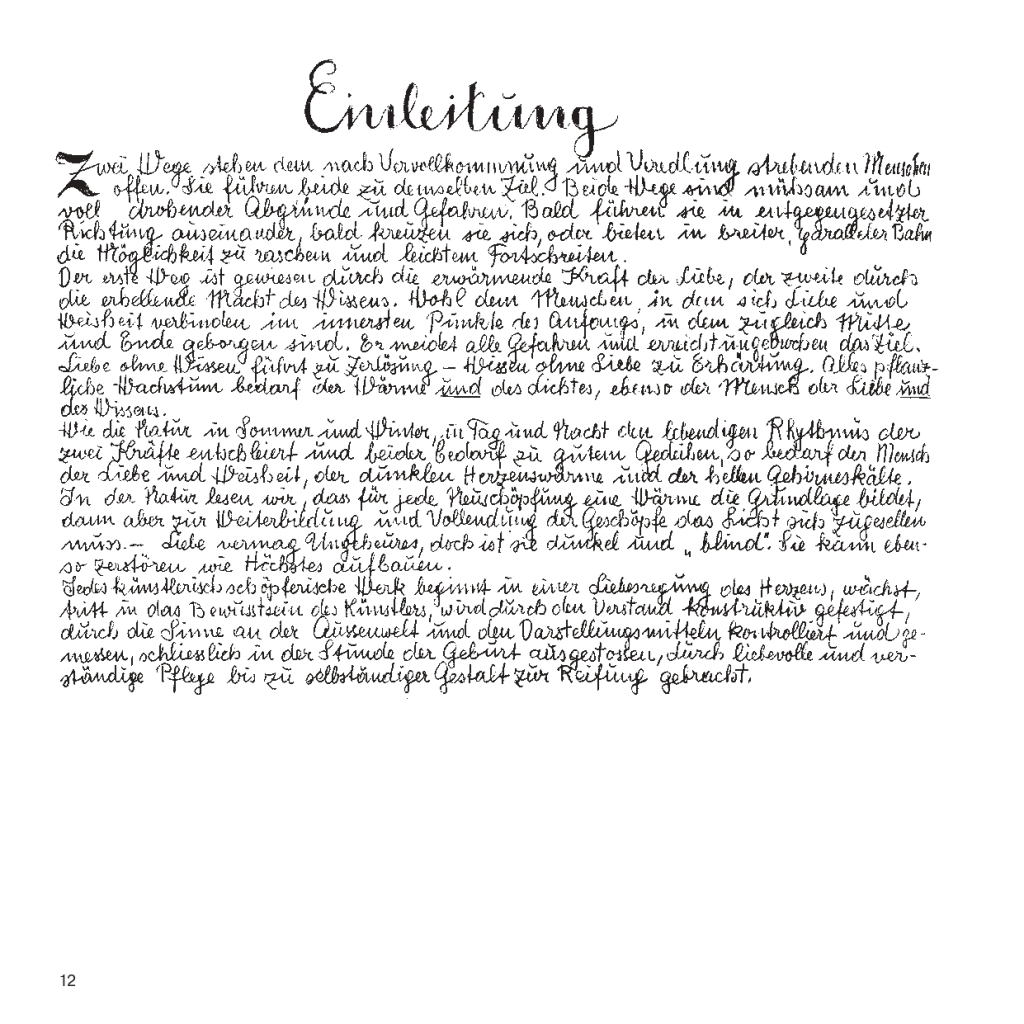 Einleitung
Zwei Wege stehen dem nach Vervollkommnung und Veredlung strebenden Menschen
offen. Sie führen beide zu demselben Ziel. Beide Wege sind mühsam und
voll drohender Abgründe und Gefahren. Bald führen sie in entgegengesetzter
Richtung auseinander, bald kreuzen sie sich, oder bieten in breiter, paralleler Bahn
die Möglichkeit zu raschem und leichtem Fortschreiten.
Der erste Weg ist gewiesen durch die erwärmende Kraft der Liebe, der zweite durch
die erhellende Macht des Wissens. Wohl dem Menschen, in dem sich Liebe und
Weisheit verbinden im innersten Punkte des Anfangs, in dem zugleich Mitte
und Ende geborgen sind. Er meidet alle Gefahren und erreicht ungebrochen das Ziel.
Liebe ohne Wissen führt zu Zerlösung – Wissen ohne Liebe zu Erhärtung. Alles pflanz-
liche Wachstum bedarf der Wärme und des Lichtes, ebenso der Mensch der Liebe und
des Wissens.
Wie die Natur in Sommer und Winter, in Tag und Nacht den lebendigen Rhythmus der
zwei Kräfte entschleiert und beider bedarf zu gutem Gedeihen, so bedarf der Mensch
der Liebe und Weisheit, der dunklen Herzenswärme und der hellen Gehirneskälte.
In der Natur lesen wir, dass für jede Neuschöpfung eine Wärme die Grundlage bildet,
dann aber zur Weiterbildung und Vollendung der Geschöpfe das Licht sich zugesellen
muss. – Liebe vermag Ungeheures, doch ist sie dunkel und „blind". Sie kann eben-
so zerstören wie Höchstes aufbauen.
Jedes künstlerisch schöpferische Werk beginnt in einer Liebesregung des Herzens, wächst,
tritt in das Bewusstsein des Künstlers, wird durch den Verstand konstruktiv gefestigt,
durch die Sinne an der Aussenwelt und den Darstellungsmitteln kontrolliert und ge-
messen, schliesslich in der Stunde der Geburt ausgestossen, durch liebevolle und ver-
ständige Pflege bis zu selbständiger Gestalt zur Reifung gebracht.
12